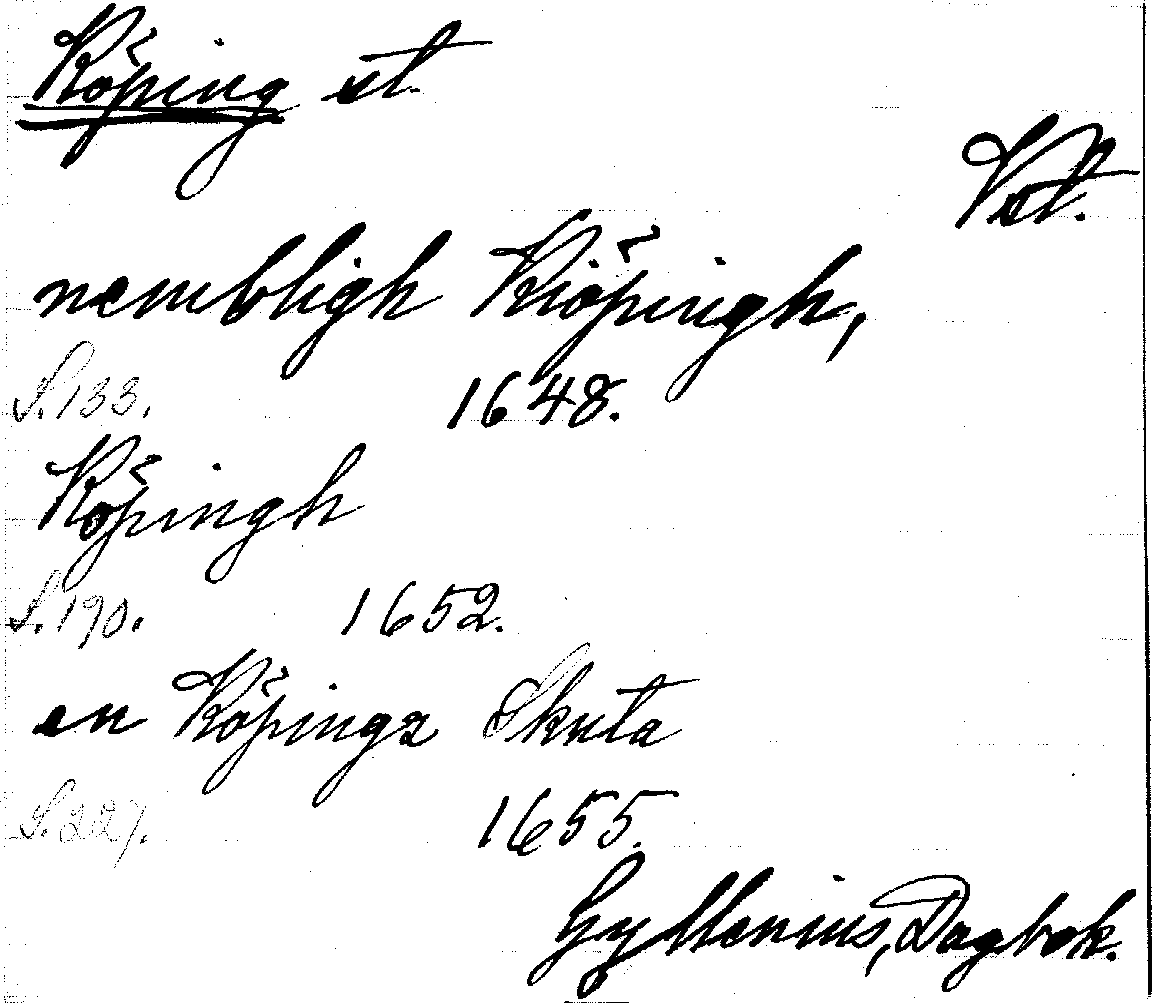 Köping st.
Vst.
nembligh Kiöpingh,
S. 133. 1648.
Köpingh
S. 190. 1652.
en Köpings Skuta
S. 227. 1655.
Gyllenius, Dagbok.